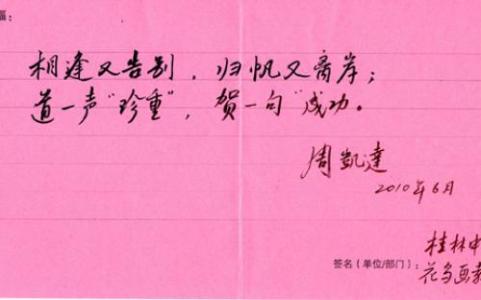 福：
相逢又告别，归帆又离岸；
道一声"珍重"，贺一句"成功。
周凯达
2010年6月
桂林中
签名（单位/部门）：花鸟画